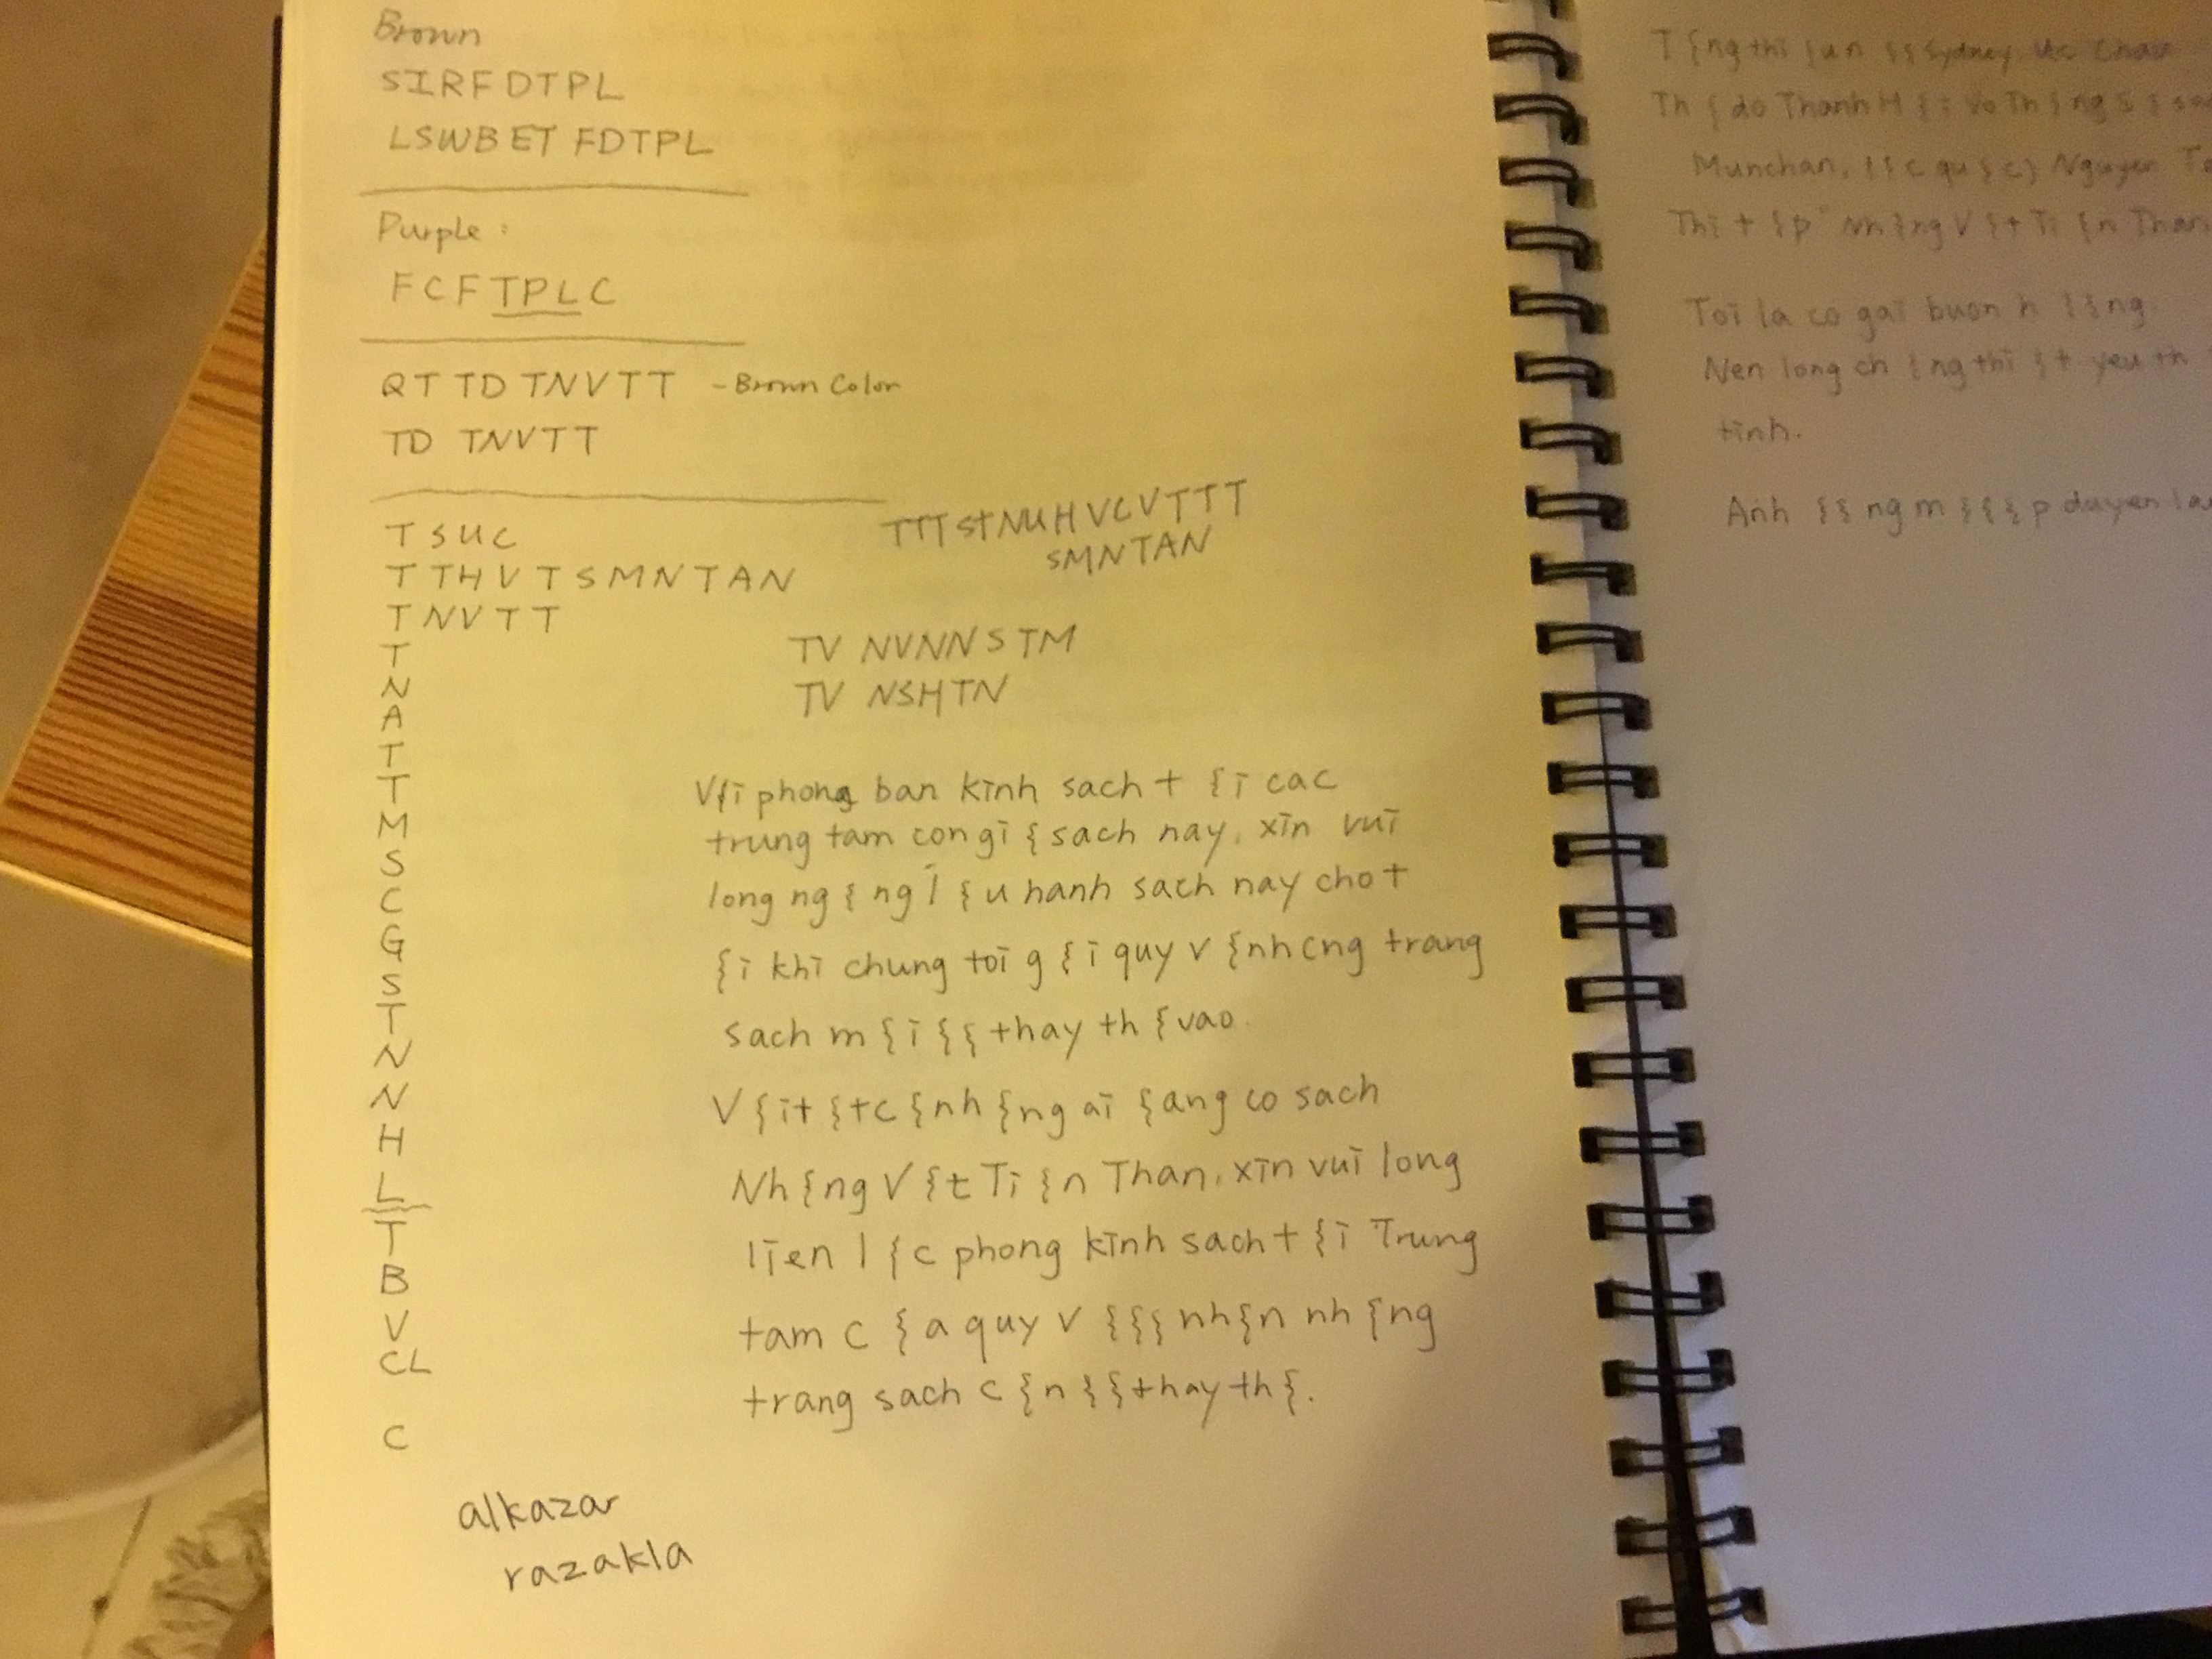 Brown
SIRFDTPL
LSWBET FDTPL
Purple:
FCFTPLC
QT TD TNVTT - Brown Color
TD TNVTT
TSUC
TTHVTSMNTAN
TNVTT
T
N
A
T
T
M
S
C
G
S
T
N
N
H
L
T
B
V
CL
C
TTTSTNUHVCVTTT
SMNTAN
TV NVNNSTM
TV NSHTN
V{i phong ban kinh sach t {i cac
trung tam con gi { sach nay, xin vui
long ng { ng l { u hanh sach nay cho t
{i khi chung toi g {i quy v {nhcng trang
sach m {i {{ thay th {vao.
V {it {tc {nh {ng ai {ang co sach
Nh {ng V {t Ti {n Than, xin vui long
lien l {c phong kinh sach t {i Trung
tam c {a quy v {{{ nh{n nh {ng
trang sach c {n {{ thay th {.
alkazar
razakla
T {ng thi {u n {{ Sydney, Uc Chau
Th { do Thanh H {i vo Th {ng S {
Munchan, {{c qu {c) Nguyen
Thi t {p " Nh {ng V {t Ti {n Than
Toi la co gai buon h {{ng.
Nen long ch {ng thi {t yeu th
tinh.
Anh {{ ng m {{{ p duyen